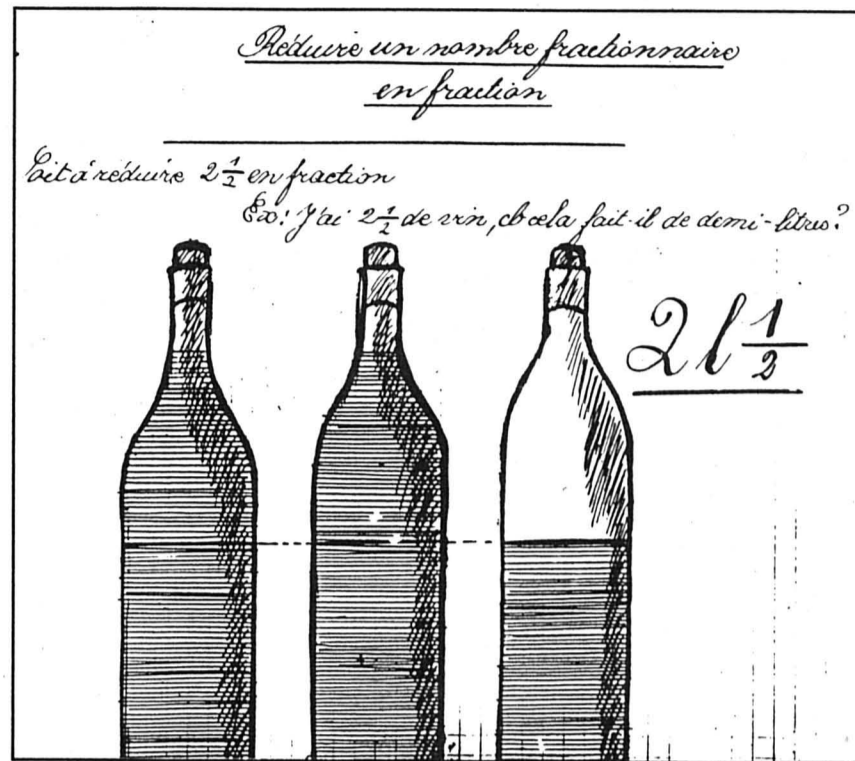 Réduire un nombre fractionnaire
en fraction
Soit à réduire 2 1/2 en fraction
Ex: J'ai 2 1/2 de vin, cb cela fait-il de demi-litres?
2 l 1/2